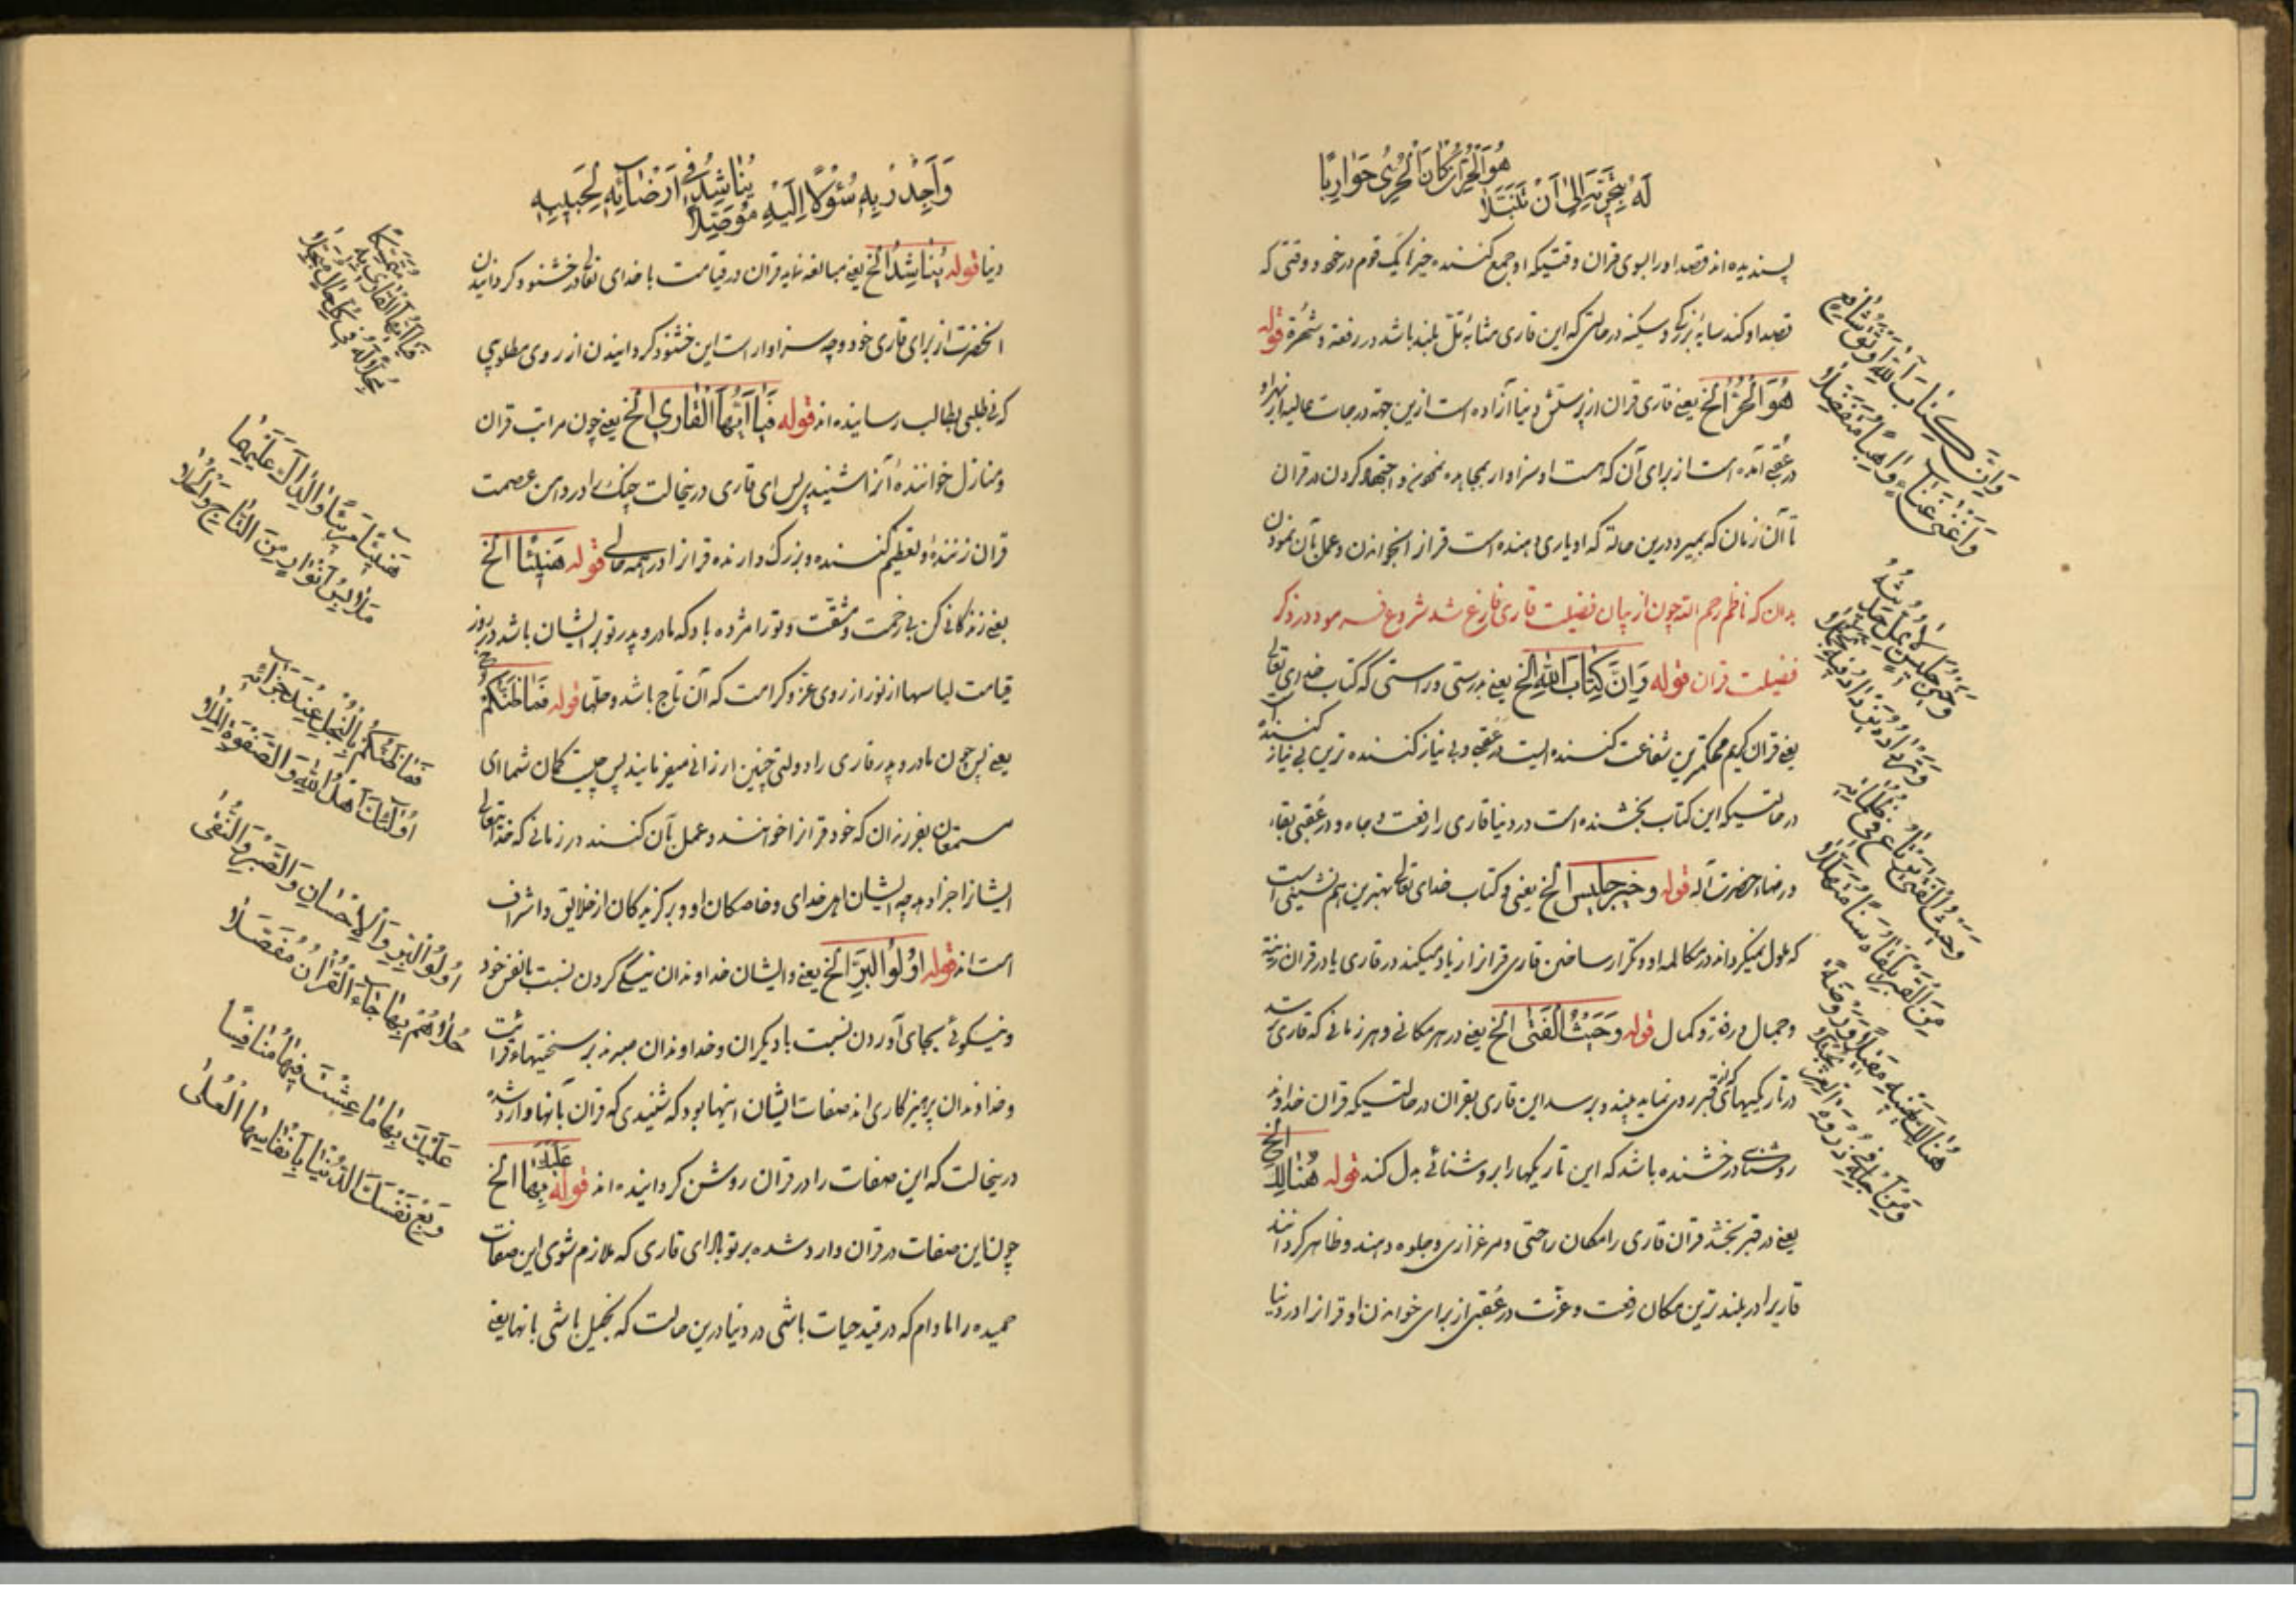 هُوَ الْحُرُّ إِنْ كَانَ الْحَرِيَّ حَوَارِيًا
لَهُ بِتَحَرِّيهِ إِلَى أَنْ تَنَبَّلَا
پسندیده اند قصد او را بسوی قران وقتیکه او جمع کننده خیرات یک قوم در خود و وقتی که
قصد او کند سایه بزرگی و سکینه در حالتی که این قاری مشابه تل بلند باشد در رفعت و شهرة قوله
هُوَ الْحُرُّ الخ یعنی قاری قران از پرستش دنیا آزاده است ازین جهة درجات عالیه از بهر او
در عقبی آمده است از برای آن که هست او سزاوار بمجاهده نمودن و اجتهاد کردن در قران
تا آن زمان که بمیرد درین حالة که او یاری دهنده است قرانرا بخواندن و عمل بآن نمودن
بدان که ناظم رحمه الله چون از بیان فضیلت قاری فارغ شد شروع فرمود در ذکر
فضیلت قران قوله وَاِنَّ كِتَابَ اللهِ الخ یعنی بدرستی و راستی که کتاب خدای تعالی
یعنی قران کریم محکمترین شفاعت کننده ایست در عقبی و بی نیاز کننده ترین بی نیاز کنندها
در حالتیکه این کتاب بخشنده است در دنیا قاری را رفعت و جاه و در عقبی بقاء
و رضاء حضرت آله قوله وخیر جلیس الخ یعنی و کتاب خدای تعالی بهترین هم نشینی است
که ملول نمیگرداند در مکالمه او و تکرار ساختن قاری قرانرا زیاد میکند در قاری یا در قران زینة
و جمال و رفعة و کمال قوله وَحَيْثُ الْفَتَى الخ یعنی در هر مکانی و هر زمانی که قاری بترسد
در تاریکیهائی که در قبر روی نماید بیند و برسد این قاری بقران در حالتیکه قران خداوند
روشنائی درخشنده باشد که این تاریکیها را بروشنائی بدل کند قوله هُنَالِكَ الخ
یعنی در قبر بخشد قران قاری را مکان راحتی و مرغزاری و جلوه دهند و ظاهر گردانند
قاریرا در بلندترین مکان رفعت و عزت در عقبی از برای خواندن او قرانرا در دنیا
وَإِنَّ كِتَابَ اللهِ أَوْثَقُ شَافِعٍ
وَأَغْنَى غَنَاءٍ وَاهِبًا مُتَفَضِّلَا
وَخَيْرُ جَلِيسٍ لَا يُمَلُّ حَدِيثُهُ
وَتَرْدَادُهُ يَزْدَادُ فِيهِ تَجَمُّلَا
وَحَيْثُ الْفَتَى يَرْتَاعُ فِي ظُلُمَاتِهِ
مِنَ الْقَبْرِ يَلْقَاهُ سَنًا مُتَهَلِّلَا
هُنَالِكَ يَهْنِيهِ مَقِيلًا وَرَوْضَةً
وَمِنْ أَجْلِهِ فِي ذِرْوَةِ الْعِزِّ يُجْتَلَا
يُنَاشِدُ فِي إِرْضَائِهِ لِحَبِيبِهِ
وَأَجْدِرْ بِهِ سُؤْلًا إِلَيْهِ مُوَصَّلَا
دنیا قوله يُنَاشِدُ الخ یعنی مبالغه نماید قران در قیامت با خدای تعالی در خشنود گردانیدن
آنحضرت از برای قاری خود و چه سزاوار است این خشنود گردانیدن از روی مطلوبی
که فی طلبی بطالب رسانیده اند قوله فَيَا أَيُّهَا الْقَارِي الخ یعنی چون مراتب قران
و منازل خواننده آنرا شنیدی پس ای قاری درینحالت چنک را در دامن عصمت
قران زننده و تعظیم کننده و بزرک دارنده قرانرا در همه حالی قوله هَنِيئًا الخ
یعنی زندکانی کن بی زحمت و مشقت و تو را مژده باد که مادر و پدر تو بر ایشان باشد در روز
قیامت لباسها از نور از روی عز و کرامت که آن تاج باشد و حلّها قوله فَمَا ظَنُّكُمْ الخ
یعنی پس چون مادر و پدر قاری را دولتی چنین ارزانی میفرمایند پس چیست کمان شما ای
مستمعان بفرزندان که خود قرانرا خوانند و عمل بآن کنند در زمانی که خدایتعالی
ایشانرا جزا دهد چه ایشان اهل خدای و خاصکان او و برکزیدکان از خلایق و اشراف
است اند قوله اُولُو الْبِرِّ الخ یعنی و ایشان خداوندان نیکی کردن نسبت بانفس خود
و نیکوئی بجای آوردن نسبت با دیکران و خداوندان صبرند بر سختیهاء قرائت
و خداوندان پرهیزکاری اند صفات ایشان اینها بود که شنیدی که قران بآنها وارد شده
درینحالت که این صفات را در قران روشن گردانیده اند قوله عَلَيْكَ بِهَا الخ
چون این صفات در قران وارد شده بر تو باد ای قاری که ملازم شوی این صفات
حمیده را مادام که در قید حیات باشی در دنیا درین حالت که بخیل باشی بآنها یعنی
فَيَا أَيُّهَا الْقَارِي بِهِ مُتَمَسِّكًا
مُجِلًّا لَهُ فِي كُلِّ حَالٍ مُبَجِّلَا
هَنِيئًا مَرِيئًا وَالِدَاكَ عَلَيْهِمَا
مَلَابِسُ أَنْوَارٍ مِنَ التَّاجِ وَالْحُلَا
فَمَا ظَنُّكُمْ بِالنَّجْلِ عِنْدَ جَزَائِهِ
أُولَئِكَ أَهْلُ اللهِ وَالصَّفْوَةُ الْمَلَا
أُولُو الْبِرِّ وَالْإِحْسَانِ وَالصَّبْرِ وَالتُّقَى
حُلَاهُمْ بِهَا جَاءَ الْقُرَانُ مُفَصَّلَا
عَلَيْكَ بِهَا مَا عِشْتَ فِيهَا مُنَافِسًا
وَبِعْ نَفْسَكَ الدُّنْيَا بِأَنْفَاسِهَا الْعُلَى